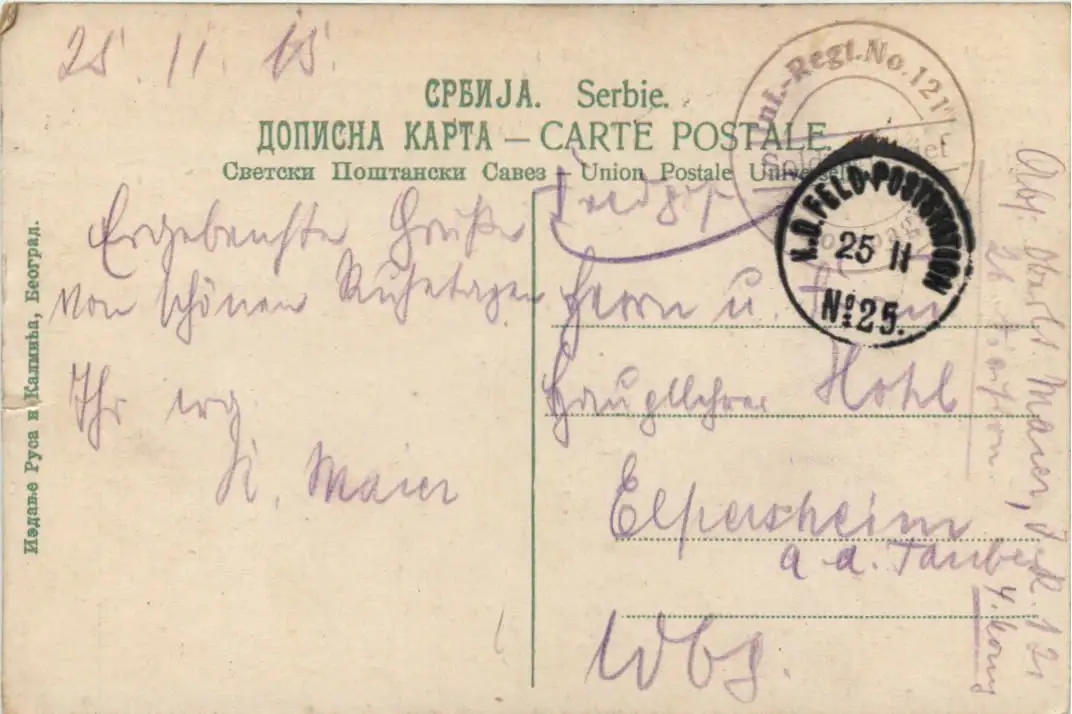 25. 11. 15.
СРБИЈА. Serbie.
ДОПИСНА КАРТА — CARTE POSTALE.
Светски Поштански Савез — Union Postale Universelle
Inf.-Regt. No. 121
K.D. FELD-POSTSTATION
25 11
No 25.
Feldpost
Ergebenste Grüße
von schönen Ruhetagen
Ihr erg.
Maier
Herrn u. Frau
Hauptlehrer Hohl
Elpersheim
a. d. Tauber
Wbg.
Abs. Maier, 121
4. Komp
26.
Издање Руса и Калмића, Београд.